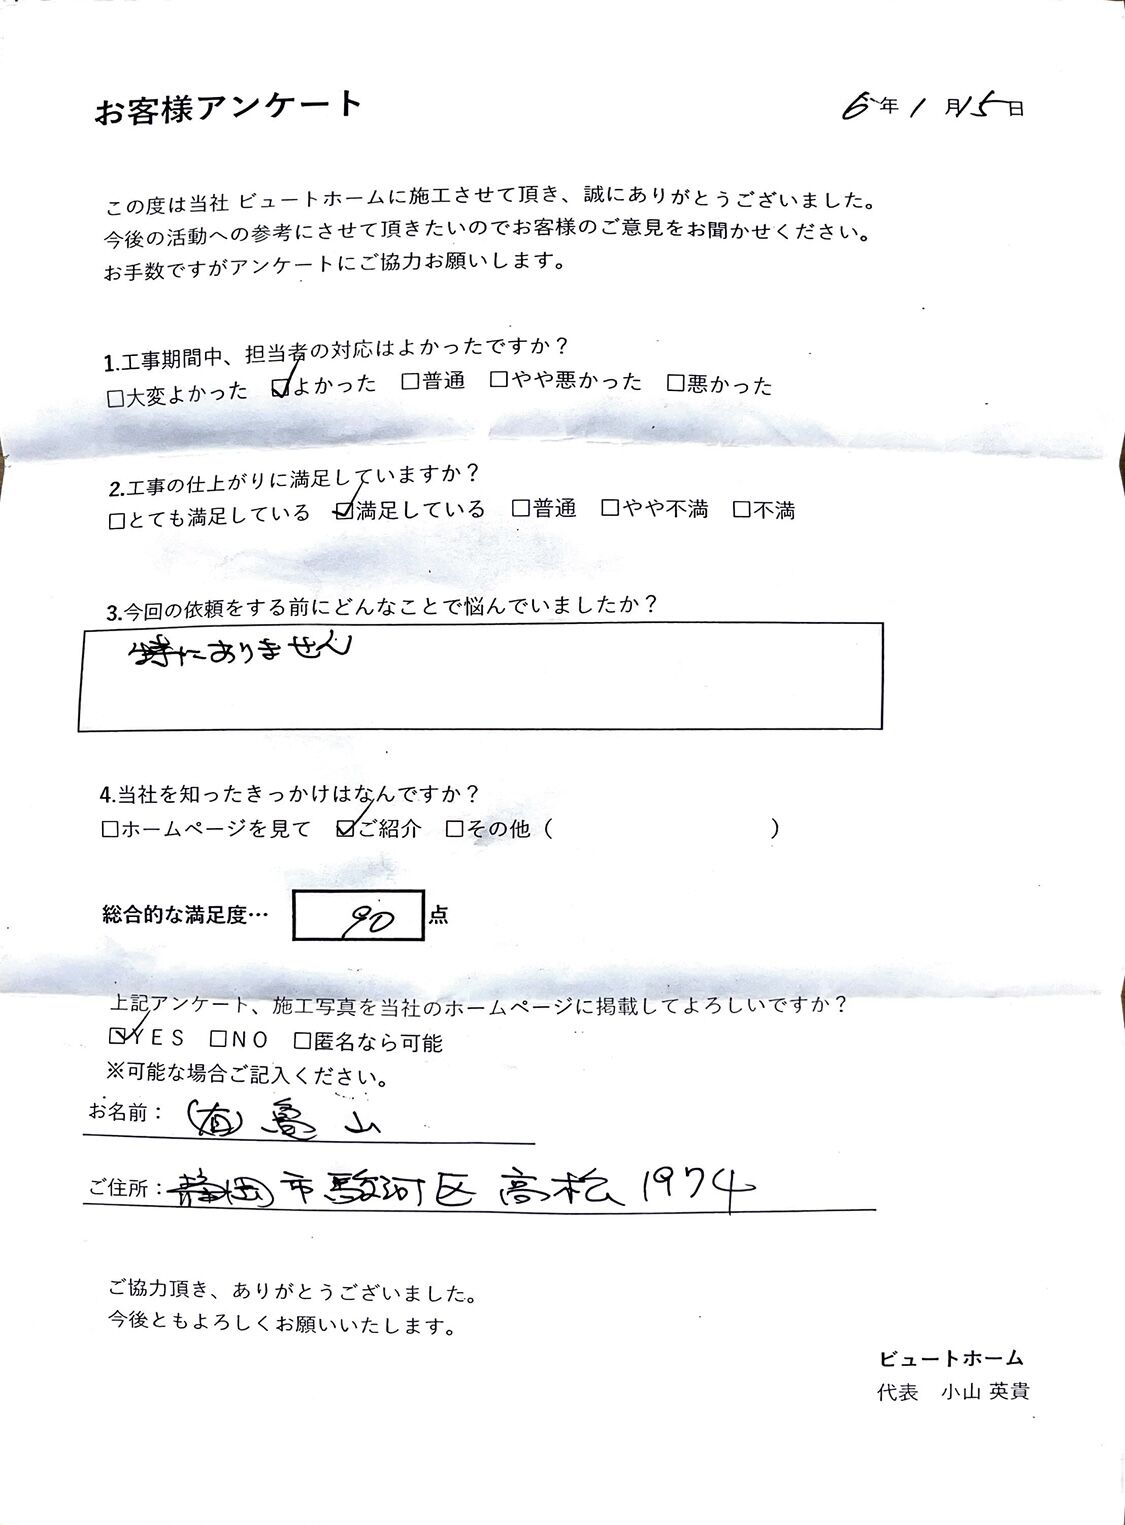 お客様アンケート
6年1月15日
この度は当社 ビュートホームに施工させて頂き、誠にありがとうございました。
今後の活動への参考にさせて頂きたいのでお客様のご意見をお聞かせください。
お手数ですがアンケートにご協力お願いします。
1.工事期間中、担当者の対応はよかったですか？
□大変よかった ☑よかった □普通 □やや悪かった □悪かった
2.工事の仕上がりに満足していますか？
□とても満足している ☑満足している □普通 □やや不満 □不満
3.今回の依頼をする前にどんなことで悩んでいましたか？
特にありません
4.当社を知ったきっかけはなんですか？
□ホームページを見て ☑ご紹介 □その他（ ）
総合的な満足度… 90 点
上記アンケート、施工写真を当社のホームページに掲載してよろしいですか？
☑YES □NO □匿名なら可能
※可能な場合ご記入ください。
お名前： (有) 亀山
ご住所：静岡市駿河区高松1974
ご協力頂き、ありがとうございました。
今後ともよろしくお願いいたします。
ビュートホーム
代表 小山 英貴